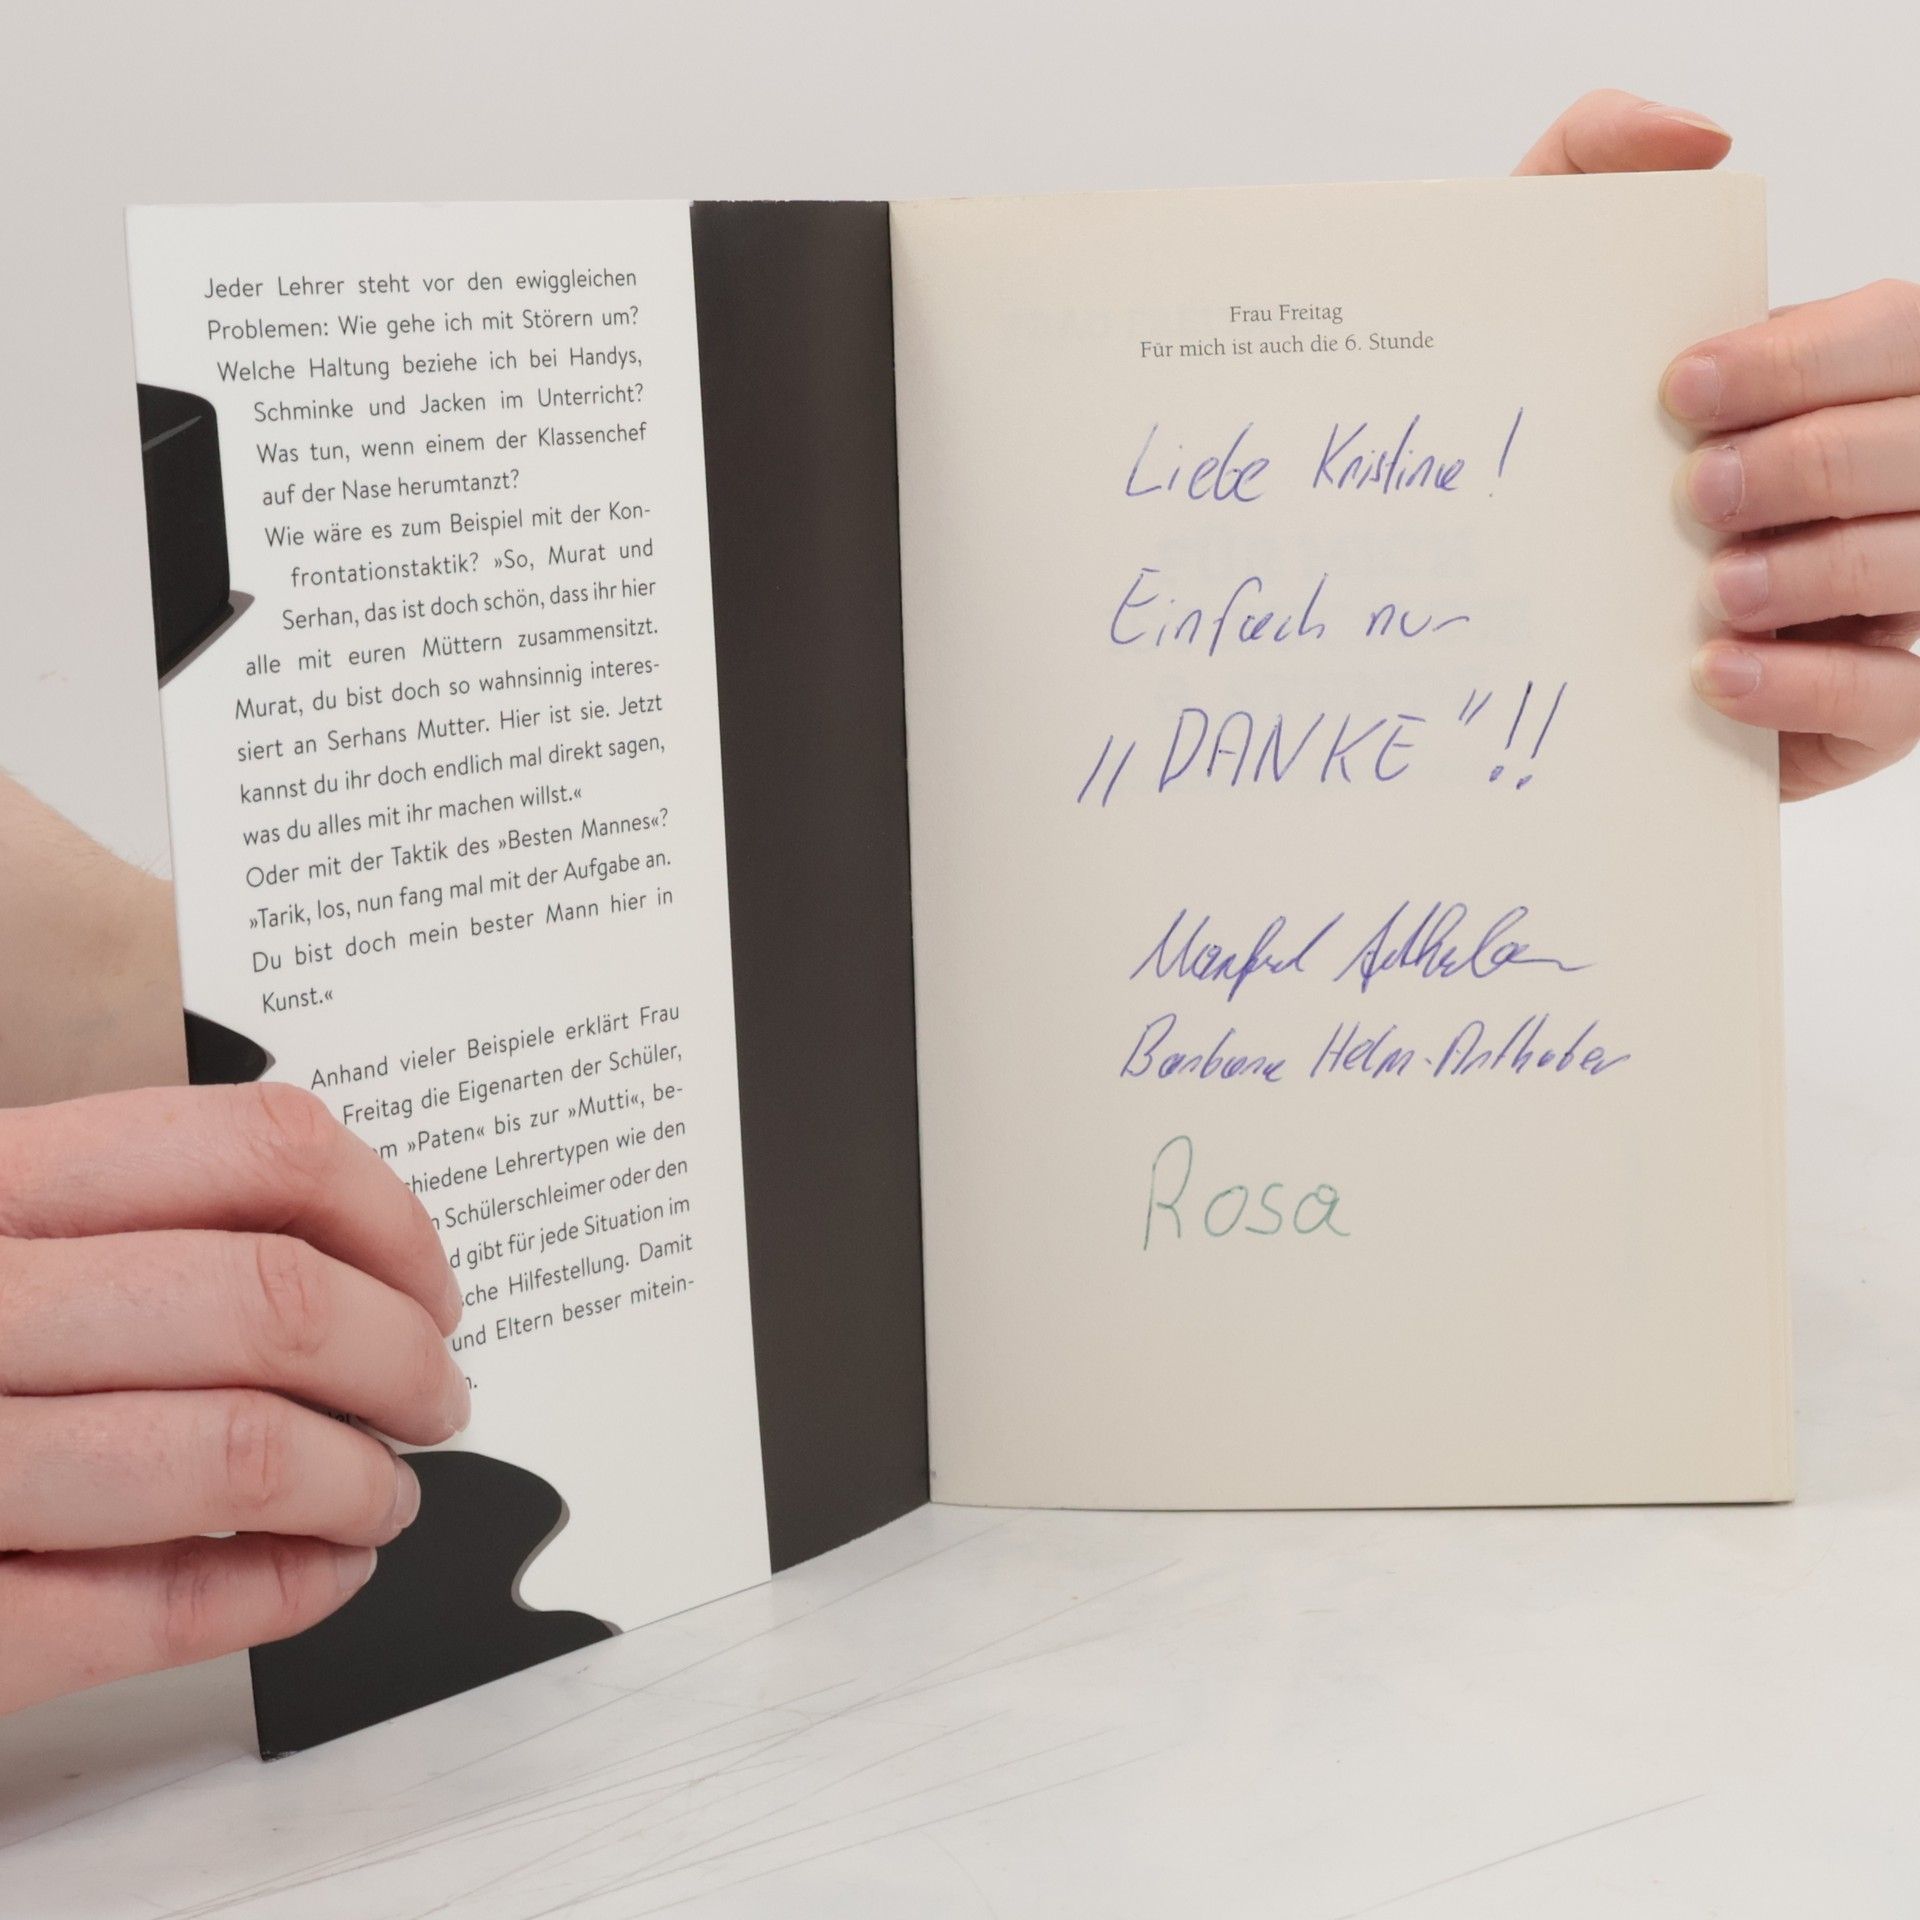 Jeder Lehrer steht vor den ewiggleichen
Problemen: Wie gehe ich mit Störern um?
Welche Haltung beziehe ich bei Handys,
Schminke und Jacken im Unterricht?
Was tun, wenn einem der Klassenchef
auf der Nase herumtanzt?
Wie wäre es zum Beispiel mit der Kon-
frontationstaktik? »So, Murat und
Serhan, das ist doch schön, dass ihr hier
alle mit euren Müttern zusammensitzt.
Murat, du bist doch so wahnsinnig interes-
siert an Serhans Mutter. Hier ist sie. Jetzt
kannst du ihr doch endlich mal direkt sagen,
was du alles mit ihr machen willst.«
Oder mit der Taktik des »Besten Mannes«?
»Tarik, los, nun fang mal mit der Aufgabe an.
Du bist doch mein bester Mann hier in
Kunst.«
Anhand vieler Beispiele erklärt Frau
Freitag die Eigenarten der Schüler,
»Paten« bis zur »Mutti«, be-
Lehrertypen wie den
Schülerschleimer oder den
gibt für jede Situation im
Hilfestellung. Damit
und Eltern besser mitein-
Frau Freitag
Für mich ist auch die 6. Stunde
Liebe Kristina!
Einfach nur
„DANKE"!!
Manfred
Barbara Helm-Arthaber
Rosa